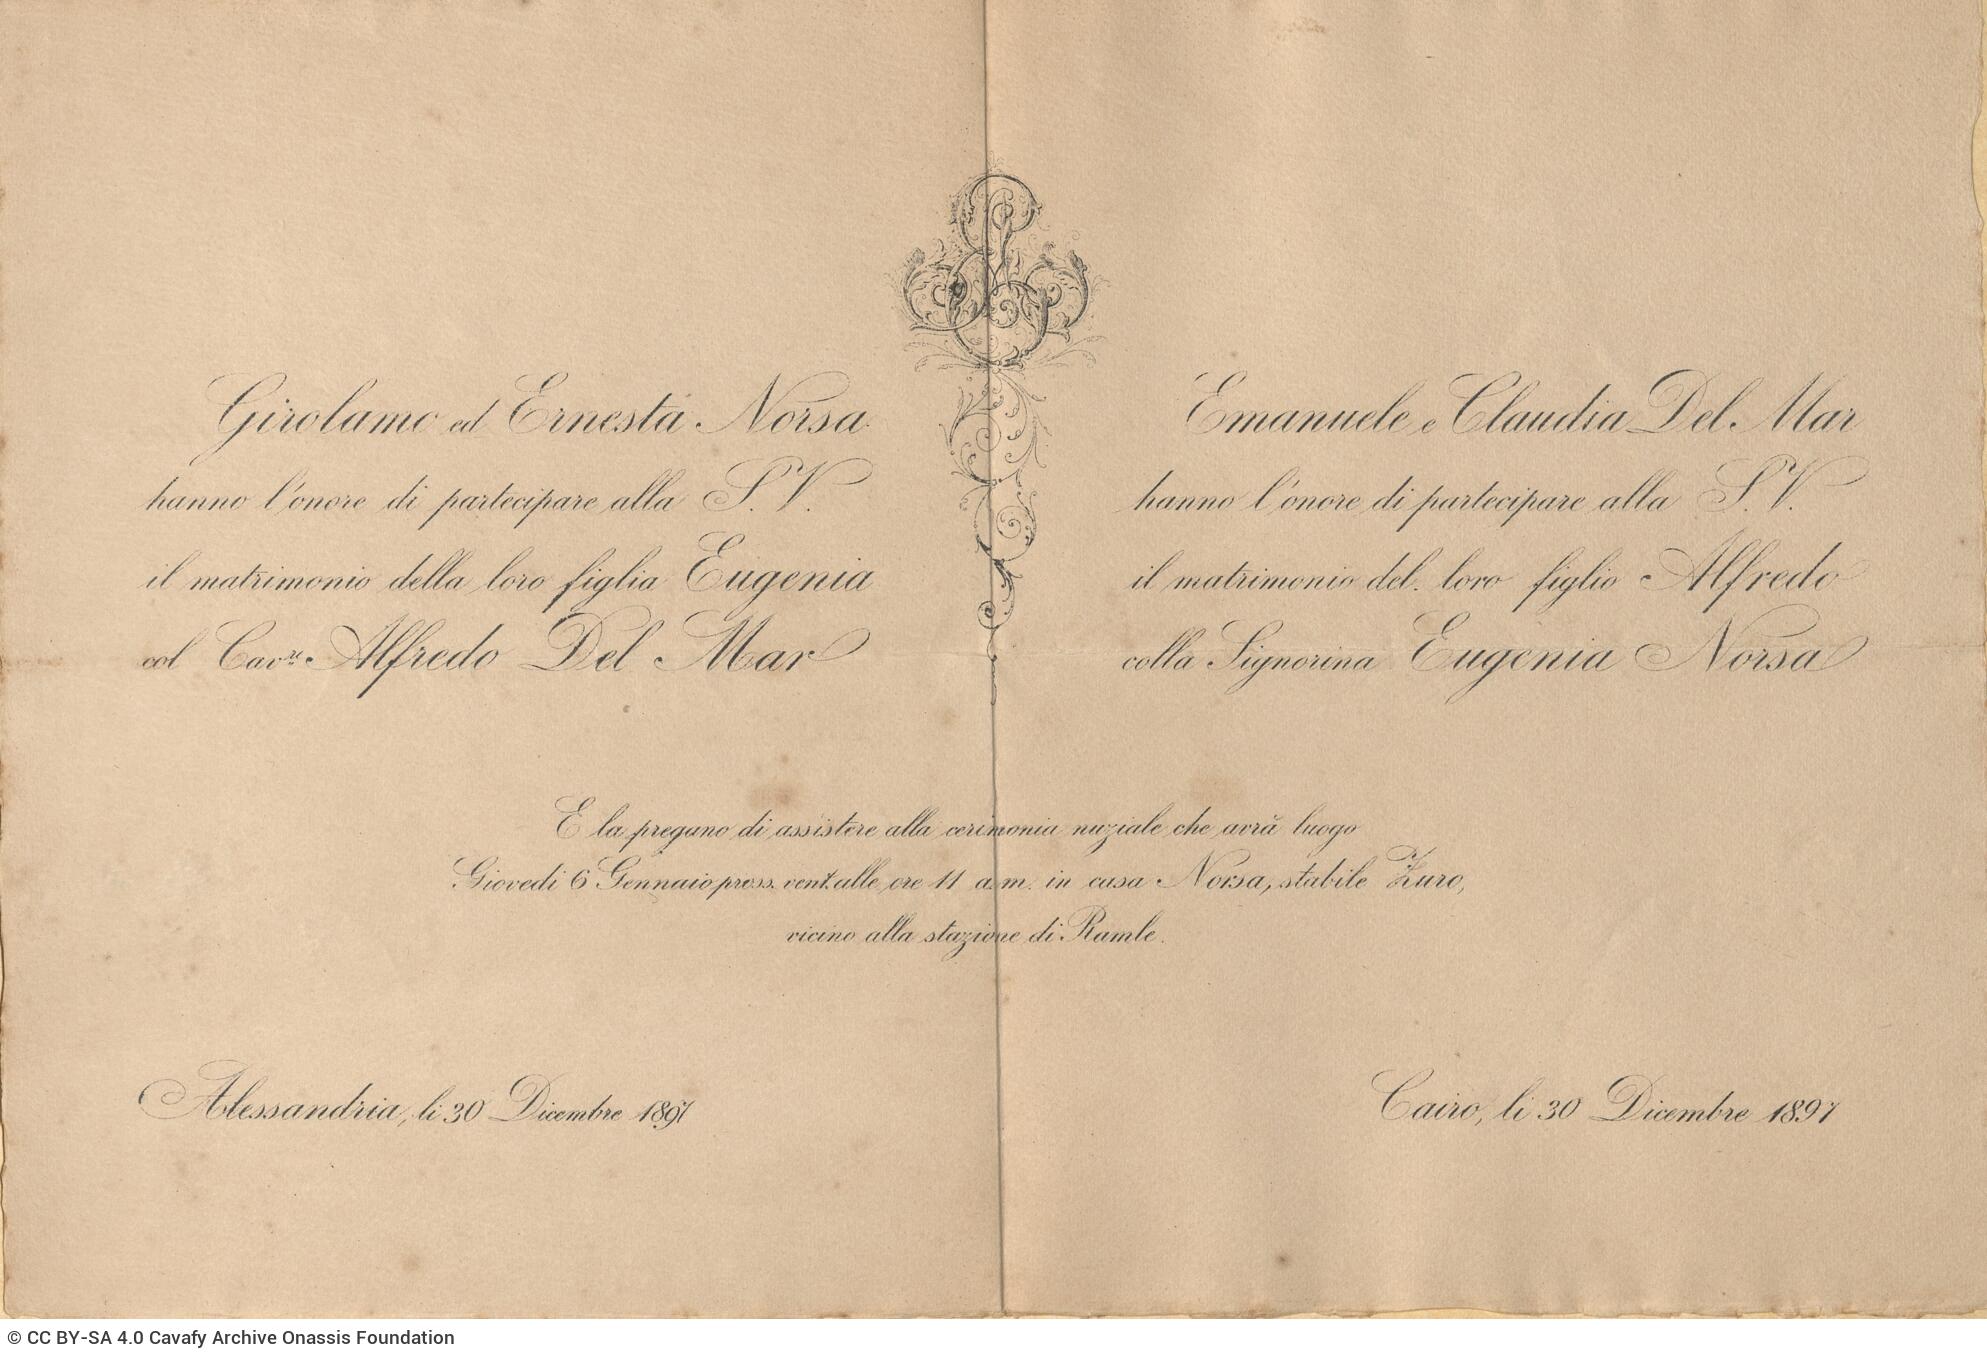 Girolamo ed Ernesta Norsa
hanno l'onore di partecipare alla S.V.
il matrimonio della loro figlia Eugenia
col Cav.re Alfredo Del Mar
Emanuele e Claudia Del Mar
hanno l'onore di partecipare alla S.V.
il matrimonio del loro figlio Alfredo
colla Signorina Eugenia Norsa
E la pregano di assistere alla cerimonia nuziale che avrà luogo
Giovedi 6 Gennaio pross. vent. alle ore 11 a.m. in casa Norsa, stabile Zuro,
vicino alla stazione di Ramle.
Alessandria, li 30 Dicembre 1897
Cairo, li 30 Dicembre 1897
© CC BY-SA 4.0 Cavafy Archive Onassis Foundation